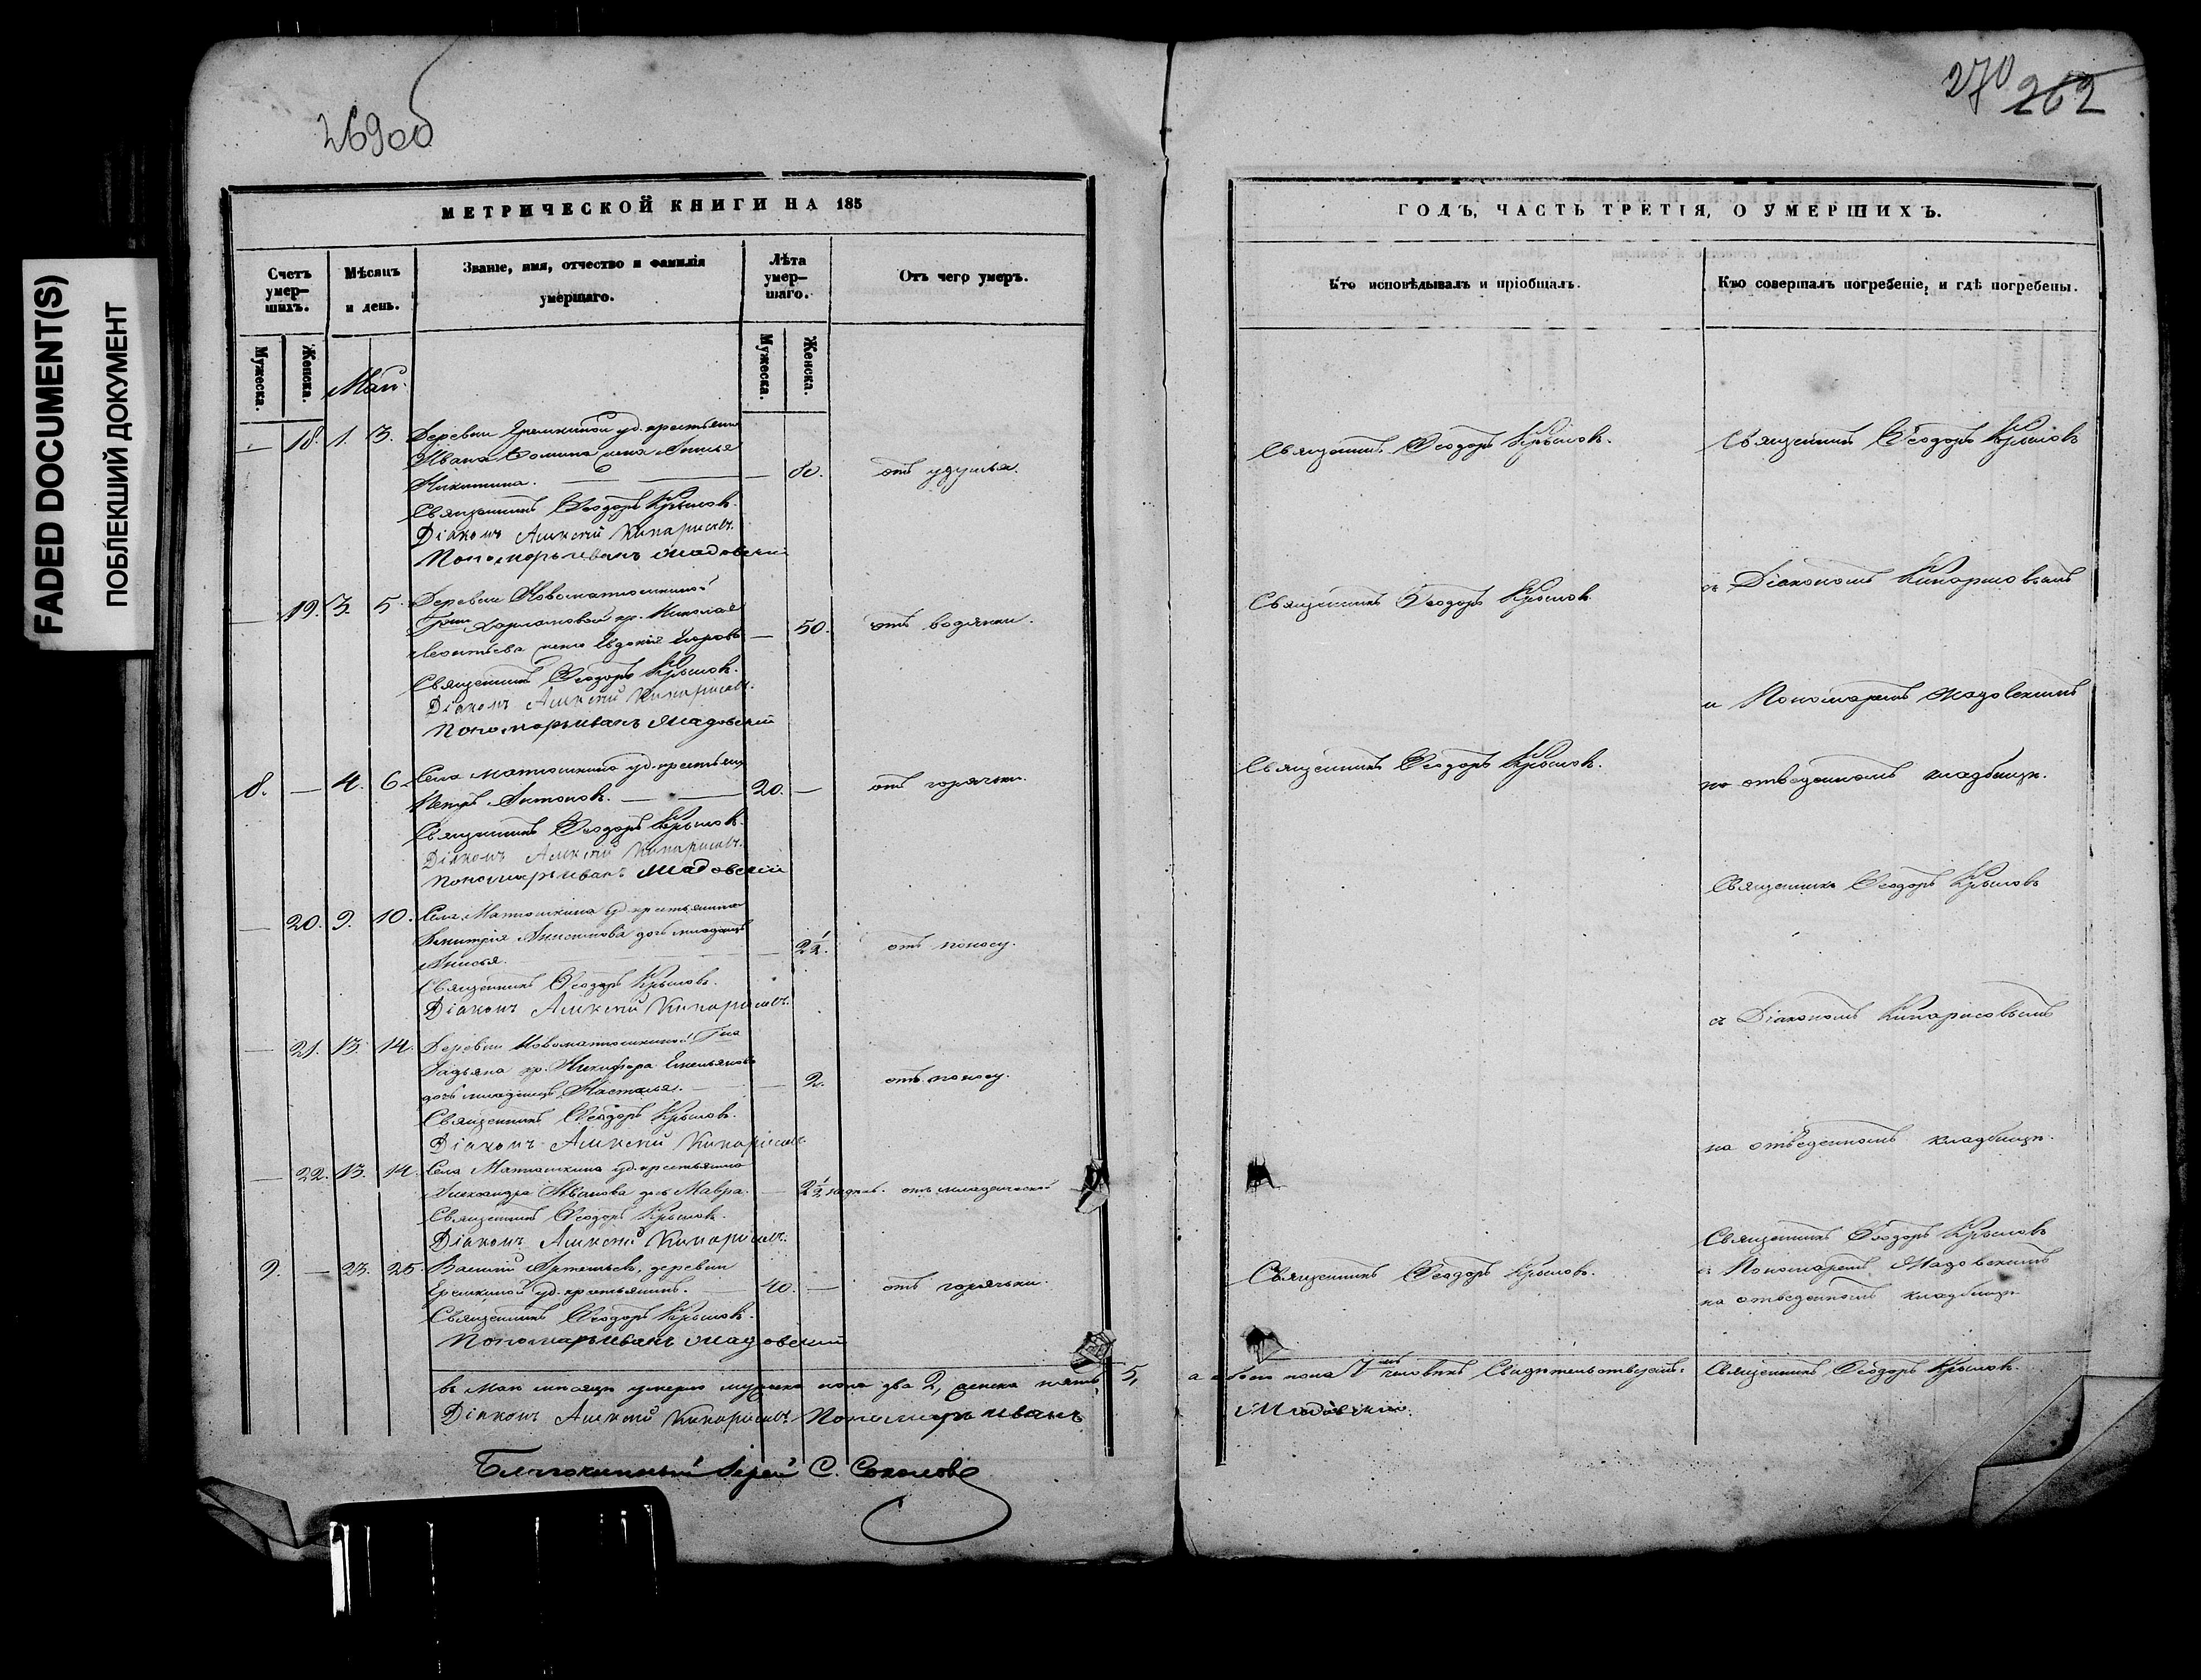 FADED DOCUMENT(S)
ПОБЛЕКШИЙ ДОКУМЕНТ
269об
270
262
МЕТРИЧЕСКОЙ КНИГИ НА 185
ГОДЪ, ЧАСТЬ ТРЕТІЯ, О УМЕРШИХЪ.
Счетъ умер-шихъ.
Мѣсяцъ и день.
Званіе, имя, отчество и фамилія умершаго.
Лѣта умер-шаго.
Отъ чего умеръ.
Кто исповѣдывалъ и пріобщалъ.
Кто совершалъ погребеніе, и гдѣ погребены.
Мужеска.
Женска.
Мужеска.
Женска.
Маіи
— 18. 1. 3. Деревни Еремкиной уд. крестьянина
Ивана жена Анисья
Никитина. — 60. отъ удушья.
Священникъ Ѳеодоръ Крыловъ.
Священникъ Ѳеодоръ Крыловъ
Священникъ Ѳеодоръ Крыловъ.
Діаконъ Алексей Кипарисовъ.
Пономарь Иванъ Мадовскій
— 19. 3. 5. Деревни Новоматюшкиной
Харламовой кр. Николая
Леонтьева жена Евдокія Егорова — 50. отъ водянки.
Священникъ Ѳеодоръ Крыловъ.
съ Діакономъ Кипарисовымъ
Священникъ Ѳеодоръ Крыловъ.
Діаконъ Алексей Кипарисовъ.
Пономарь Иванъ Мадовскій
и Пономаремъ Мадовскимъ
8. — 4. 6. Села Матюшкина уд. крестьян.
Петръ Антоновъ. — 20. — отъ горячки.
Священникъ Ѳеодоръ Крыловъ.
на отведенномъ кладбищѣ.
Священникъ Ѳеодоръ Крыловъ.
Діаконъ Алексей Кипарисовъ.
Пономарь Иванъ Мадовскій
Священникъ Ѳеодоръ Крыловъ
— 20. 9. 10. Села Матюшкина уд. крестьянина
Димитрія Анисимова дочь младенецъ
Анисья. — 2½. отъ поносу.
Священникъ Ѳеодоръ Крыловъ.
Діаконъ Алексей Кипарисовъ.
съ Діакономъ Кипарисовымъ
— 21. 13. 14. Деревни Новоматюшкиной Гна
кр. Никифора Емельянова
дочь младенецъ Настасья. — 2. отъ поносу.
Священникъ Ѳеодоръ Крыловъ.
Діаконъ Алексей Кипарисовъ
на отведенномъ кладбищѣ.
— 22. 13. 14. Села Матюшкина уд. крестьянина
Александра Иванова дочь Мавра. — отъ младенческой
Священникъ Ѳеодоръ Крыловъ.
Діаконъ Алексей Кипарисовъ.
Священникъ Ѳеодоръ Крыловъ
9. — 23. 25. Василій Артемьевъ, деревни
Еремкиной уд. крестьянинъ. — 40. — отъ горячки.
Священникъ Ѳеодоръ Крыловъ.
съ Пономаремъ Мадовскимъ
на отведенномъ кладбищѣ
Священникъ Ѳеодоръ Крыловъ.
Пономарь Иванъ Мадовскій
въ Маѣ мѣсяцѣ умерло мужеска пола два 2, женска пять 5,
а обоего пола 7мь человѣкъ Свидѣтельствуемъ: Священникъ Ѳеодоръ Крыловъ.
Діаконъ Алексей Кипарисовъ Пономарь Иванъ
Мадовскій.
Благочинный Іерей С. Соколовъ